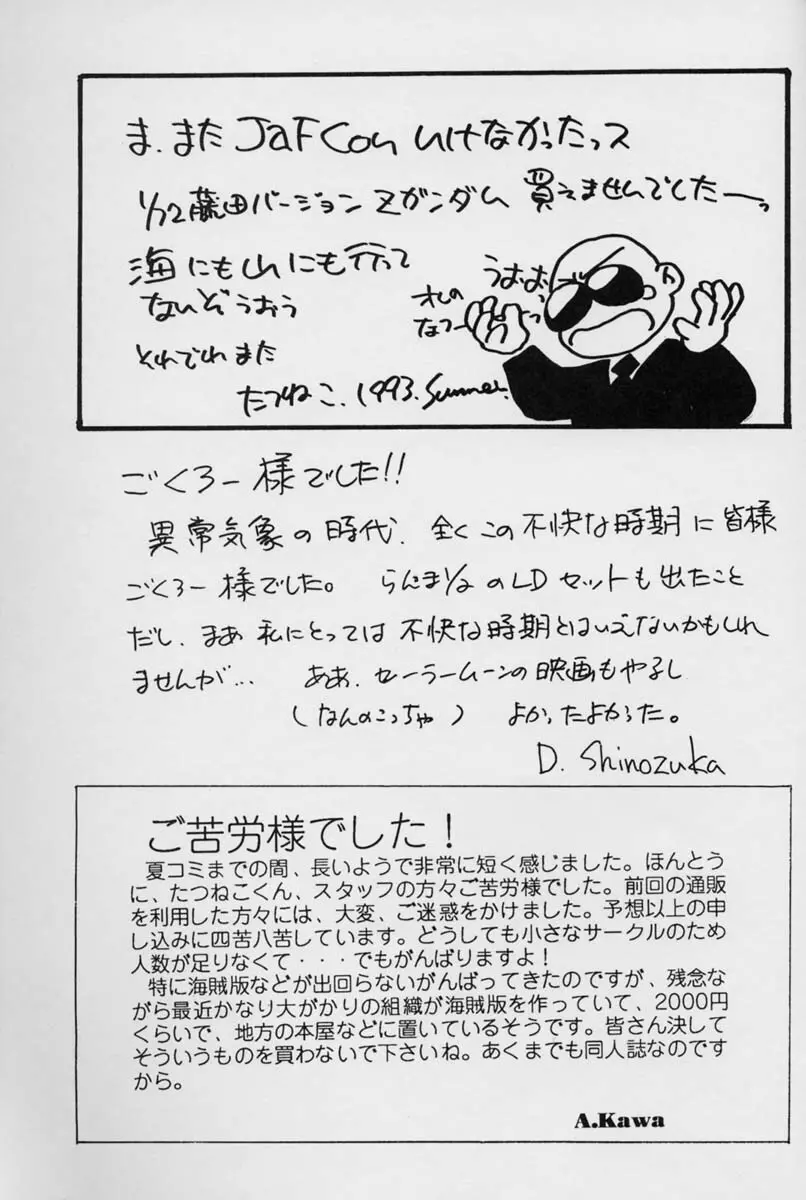 ま、また JaFCon いけなかったっス
1/72藤田バージョン Zガンダム 買えませんでしたーっ
海にも山にも行って
ないぞうおう
うおおっ
オレの
なつーっ
それでわまた
たつねこ. 1993. Summer.
ごくろー様でした!!
異常気象の時代、全くこの不快な時期に皆様
ごくろー様でした。 らんま1/2のLDセットも出たこと
だし、まあ私にとっては不快な時期とはいえないかもしれ
ませんが... ああ、セーラームーンの映画もやるし
(なんのこっちゃ) よかったよかった。
D. Shinozuka
ご苦労様でした！
夏コミまでの間、長いようで非常に短く感じました。ほんとう
に、たつねこくん、スタッフの方々ご苦労様でした。前回の通販
を利用した方々には、大変、ご迷惑をかけました。予想以上の申
し込みに四苦八苦しています。どうしても小さなサークルのため
人数が足りなくて・・・でもがんばりますよ！
特に海賊版などが出回らないがんばってきたのですが、残念な
がら最近かなり大がかりの組織が海賊版を作っていて、2000円
くらいで、地方の本屋などに置いているそうです。皆さん決して
そういうものを買わないで下さいね。あくまでも同人誌なのです
から。
A.Kawa